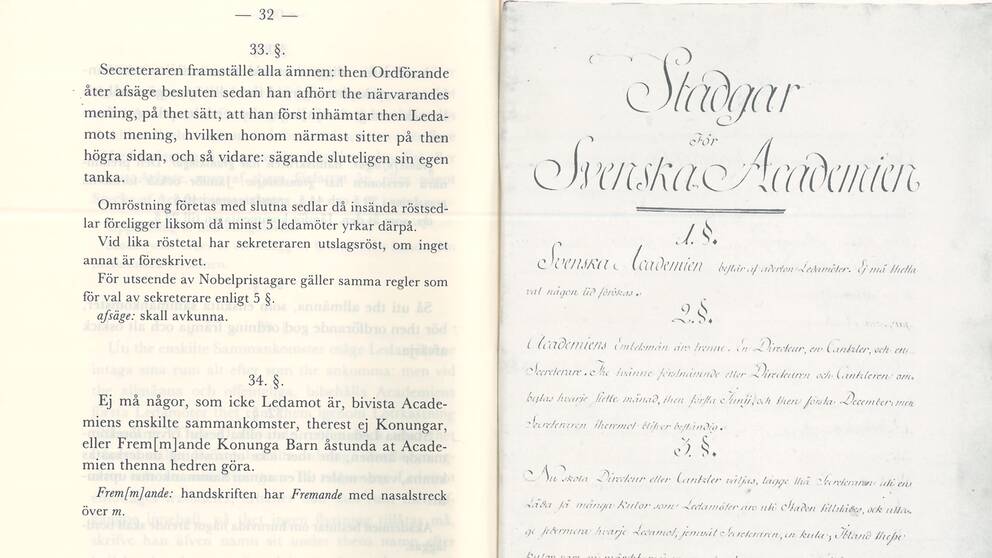 — 32 —
33. §.
Secreteraren framställe alla ämnen: then Ordförande
åter afsäge besluten sedan han afhört the närvarandes
mening, på thet sätt, att han först inhämtar then Leda-
mots mening, hvilken honom närmast sitter på then
högra sidan, och så vidare: sägande sluteligen sin egen
tanka.
Omröstning företas med slutna sedlar då insända röstsed-
lar föreligger liksom då minst 5 ledamöter yrkar därpå.
Vid lika röstetal har sekreteraren utslagsröst, om inget
annat är föreskrivet.
För utseende av Nobelpristagare gäller samma regler som
för val av sekreterare enligt 5 §.
afsäge: skall avkunna.
34. §.
Ej må någor, som icke Ledamot är, bivista Acade-
miens enskilte sammankomster, therest ej Konungar,
eller Frem[m]ande Konunga Barn åstunda at Acade-
mien thenna hedren göra.
Frem[m]ande: handskriften har Fremande med nasalstreck
över m.
Stadgar
för
Svenska Academien
1. §.
Svenska Academien består af aderton Ledamöter. Ej må thetta
val någon tid förökas.
2. §.
Academiens Embetsmän äro trenne. En Directeur, en Cantzler, och en
Secreterare. The tvänne förstnämnde eller Directeuren och Cantzleren om-
bytas hvarje siette månad, then första Junij, och then första December: men
Secreteraren theremot blifver beständig.
3. §.
Nu skola Directeur eller Cantzler väljas, lägge thå Secreteraren uti en
Låda så många Kulor som Ledamöter äro vid Staden tillstädes, och utta-
ge sedermera hvarje Ledamot, jemväl Secreteraren, en kula; Ibland thesse